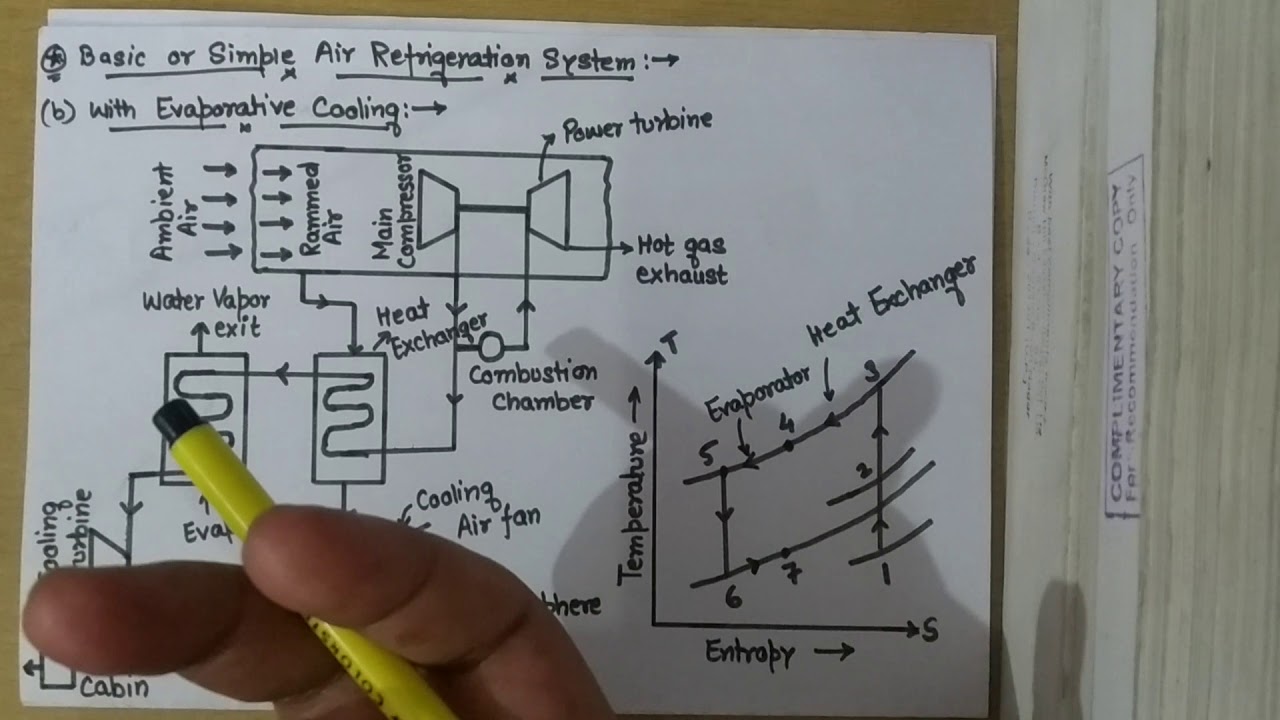 Basic or Simple Air Refrigeration System:→
(b) With Evaporative Cooling:→
Power turbine
Ambient
Air
Rammed
Air
Main
Compressor
Hot gas
exhaust
Water Vapor
exit
Heat
Exchanger
Combustion
Chamber
Cooling
Air fan
Cabin
T
Heat Exchanger
Evaporator
3
4
5
2
7
6
1
Temperature →
S
Entropy →
COMPLIMENTARY COPY
For Recommendation Only